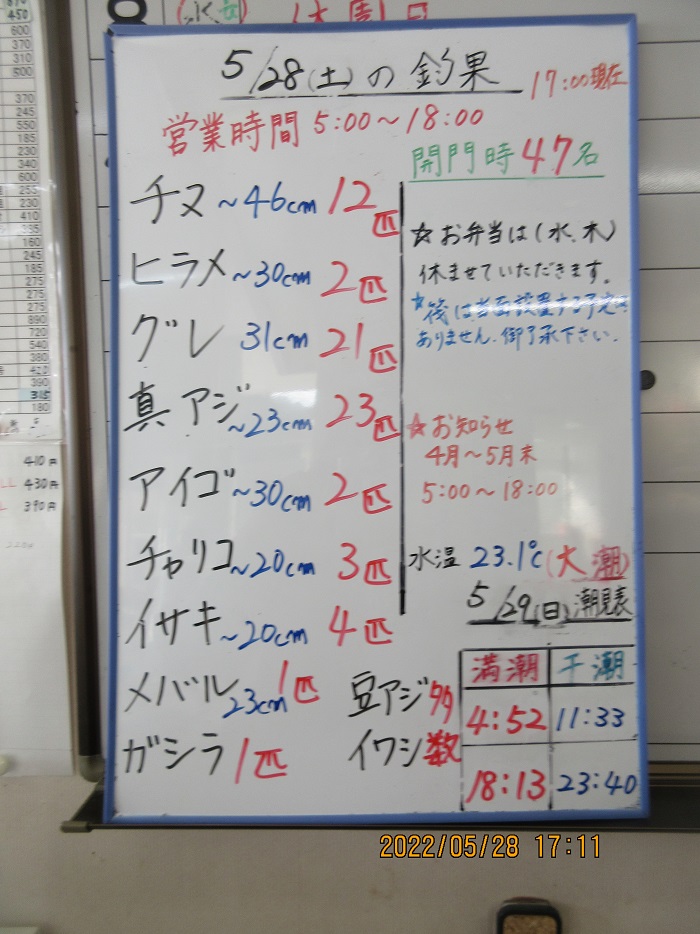 5/28(土)の釣果 17:00現在
営業時間 5:00〜18:00
開門時47名
チヌ〜46cm 12匹
ヒラメ〜30cm 2匹
グレ 31cm 21匹
真アジ〜23cm 23匹
アイゴ〜30cm 2匹
チャリコ〜20cm 3匹
イサキ〜20cm 4匹
メバル 23cm 1匹
ガシラ 1匹
豆アジ 多
イワシ 数
☆お弁当は(水、木)
休ませていただきます。
☆筏は当面設置する予定は
ありません。御了承下さい。
☆お知らせ
4月〜5月末
5:00〜18:00
水温 23.1℃(大潮)
5/29(日)潮見表
満潮 干潮
4:52 11:33
18:13 23:40
410円
430円
390円
2022/05/28 17:11